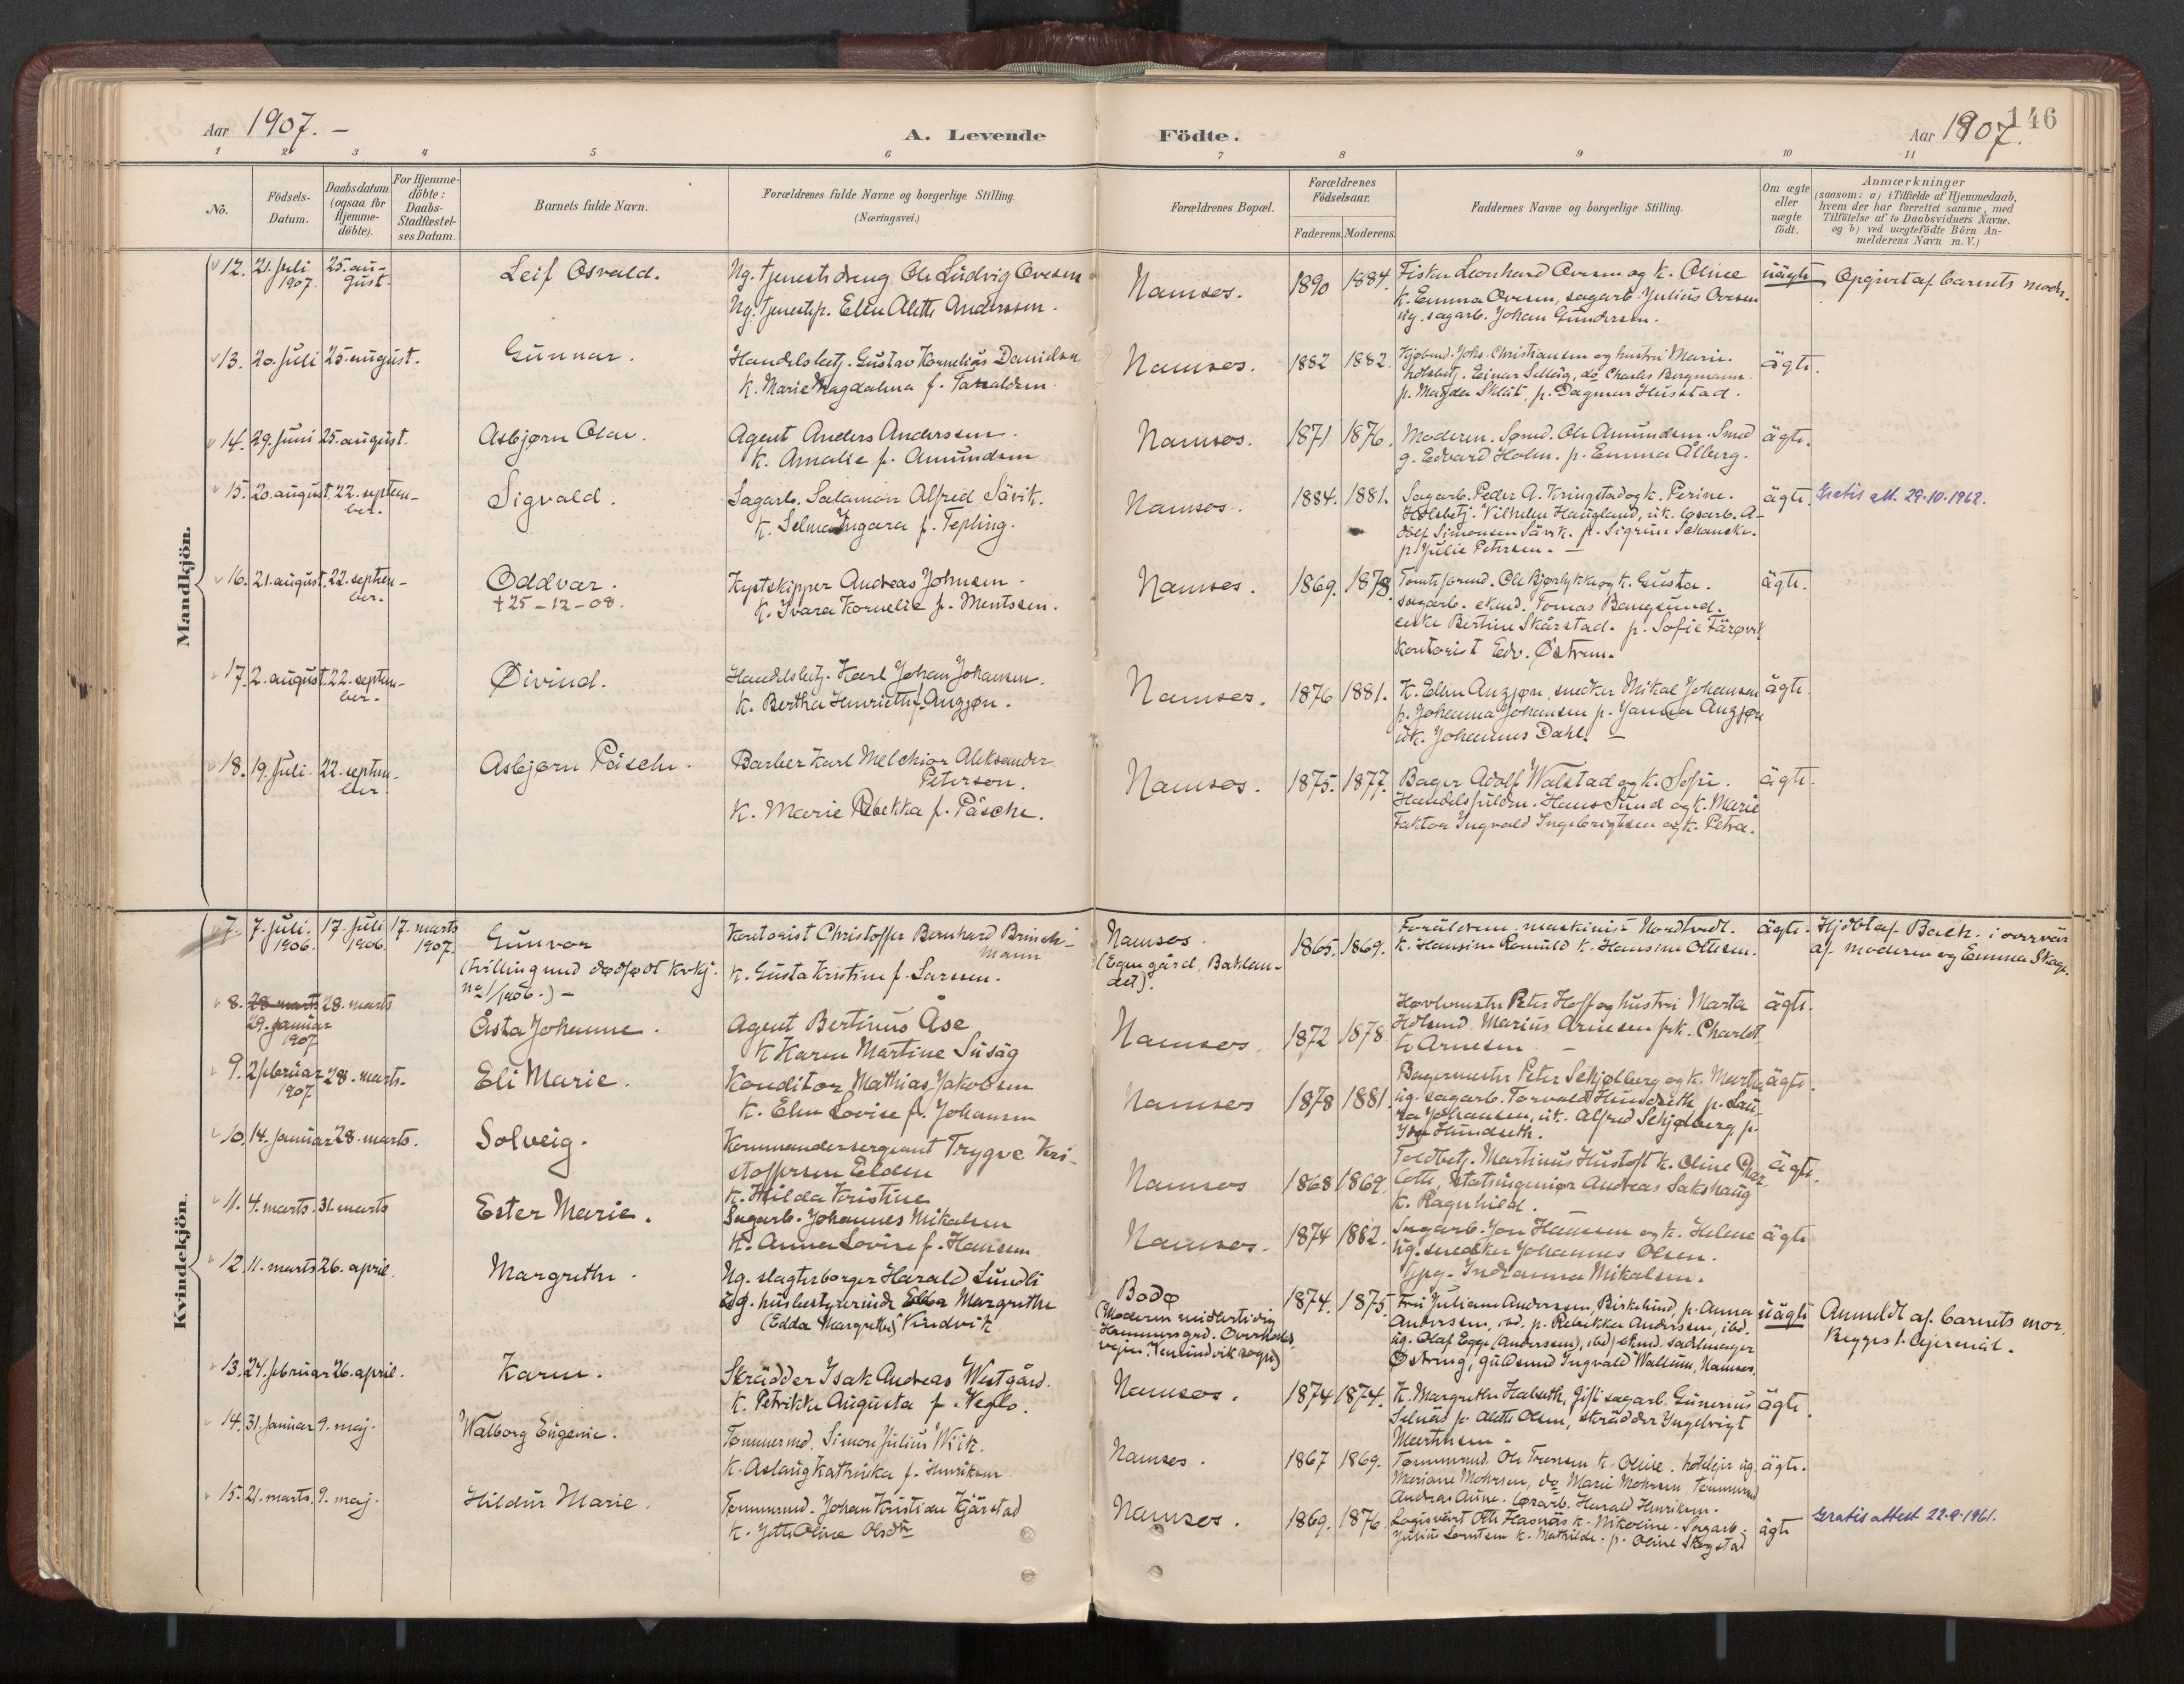 Aar 1907. –
A. Levende Födte.
Aar 1907.
146
1 2 3 4 5 6 7 8 9 10 11
No.
Födsels-Datum.
Daabsdatum (ogsaa för Hjemme-döbte).
For Hjemme-döbte: Daabs-Stadfæstel-ses Datum.
Barnets fulde Navn.
Forældrenes fulde Navne og borgerlige Stilling.
(Næringsvei.)
Forældrenes Bopæl.
Forældrenes Födselsaar.
Faderens. Moderens.
Faddernes Navne og borgerlige Stilling.
Om ægte eller uægte födt.
Anmærkninger
(saasom: a) i Tilfælde af Hjemmedaab,
hvem der har forrettet samme, med
Tilföielse af to Daabsvidners Navne.
og b) ved uægtefödte Börn An-
melderens Navn m. V.)
Mandkjön.
12. 21. juli 1907. 25. au-gust. Leif Osvald.
Ug. tjenestedreng Ole Ludvig Ovesen
Ug. tjenestep. Elen Alette Anderssen.
Namsos. 1890 1884.
Fisker Leonhard Ovesen og k. Oline
k. Emma Ovesen, sagarb. Julius Ovesen
ug. sagarb. Johan Gundersen.
uägte Opgivet af barnets moder.
13. 20. juli 25. august. Gunnar.
Handelsbetj. Gustav Kornelius Danielsen
k. Marie Magdalena f.
Namsos. 1882 1882.
Kjøbmd. Johs. Christiansen og hustru Marie.
hdlsbetj. Einar Selläg, do Charles Bergmann.
p. Magda p. Dagmar Husstad.
ägte.
14. 29. juni 25. august. Asbjørn Olav.
Agent Anders Anderssen.
k. Amalie f. Amundsen
Namsos. 1871 1876.
Moderen. Ole Amundsen. Smed
g. Edvard Holm. p. Emma Ålberg.
ägte.
15. 20. august. 22. septem-ber. Sigvald.
Sagarb. Salamon Alfred Sävik.
k. Selma Ingara f. Tepling.
Namsos. 1884. 1881.
Sagarb. Peder A. Kringstad og k. Perine.
Hdlsbetj. Vilhelm Haugland, uk. løsarb. A-
dolf Simonsen Sävik. p. Sigrun Schanche.
p. Julie Petersen. –
ägte. Gratis att. 29.10.1962.
16. 21. august. 22. septem-ber. Oddvar.
† 25-12-08.
Kystskipper Andreas Johnsen.
k. Ivara Kornelie f. Mentssen.
Namsos. 1869. 1878.
Ole Bjørlykke og k. Gusta.
sagarb. ekmd. Tomas Bangsund.
enke Bertine Skårstad. p. Sofie Färøvik
Kontorist Edv. Østrem.
ägte.
17. 2. august. 22. septem-ber. Øivind.
Handelsbetj. Karl Johan Johansen.
k. Bertha Henriette f. Angjøn.
Namsos. 1876 1881.
K. Elen Angjøn, snedker Mikal Johansen
p. Johanna Johansen p. Janna Angjøn
uk. Johannes Dahl. –
ägte.
18. 19. juli. 22. septem-ber. Asbjørn Päsche.
Barber Karl Melchior Aleksander
Peterson.
k. Marie Rebekka f. Päsche.
Namsos. 1875. 1877.
Bager Adolf Walstad og k. Sofie.
Handelsfuldm. Hans Sund og k. Marie
Faktor Ingvald Ingebrigtsen og k. Petra.
ägte.
Kvindekjön.
7. 7. juli. 1906. 17. juli 1906. 17. marts 1907. Gunvor
(tvilling med dødfødt kvkj.
No 1/1906.) –
Kontorist Christoffer Bernhard Brinch-
mann
k. Gusta Kristine f. Larssen.
Namsos.
(Egen gård, Baklan-
det).
1865. 1869.
Foräldrene, maskinist Nordtvedt.
k. Hansine Romuld k. Hansine Ottesen.
ägte. Hjdbt af Bach. i overvär
af moderen og Emma Skage.
8. 28 marts 29. januar 1907 28. marts Åsta Johanne.
Agent Bertinus Åse
k. Karen Martine Susäg
Namsos. 1872 1878.
Høvlemester Peter Hoff og hustru Marta
Hdlsmd. Marius Arnesen frk. Charlot-
te Arnesen –
ägte.
9. 2 februar 1907 28. marts. Eli Marie.
Konditor Mathias Jakobsen
k. Elen Lovise f. Johansen
Namsos 1878 1881.
Bagermester Peter Schjølberg og k. Martha
ug. sagarb. Torvald Hundseth p. Lau-
ra Johansen, uk. Alfred Schjølberg, p.
Hundseth.
ägte.
10. 14. januar 28. marts. Solveig.
Kommandersergeant Trygve Kri-
stoffersen Elden
k. Hilda Kristine
Namsos 1868 1869.
Toldbetj. Martinus Hustoft k. Oline Char-
lotte, Statsingeniør Andreas Sakshaug
k. Ragnhild.
ägte.
11. 4. marts. 31. marts Ester Marie.
Sagarb. Johannes Mikalsen
k. Anna Lovise f. Hansen.
Namsos. 1874 1882.
Sagarb. Jon Hanssen og k. Helene
ug. snedker Johannes Olsen.
Indianna Mikalsen.
ägte
12. 11. marts 26. april. Margrethe.
Ug. slagterborger Harald Lundli
ug. husbestyrerinde Ebba Margrethe
(Edda Margrethe) Vindvik
Bodø
(Moderen midlertidig
Hammersgrd. Overhalds-
vejen. Vemundvik sogn)
1874. 1875.
Fru Juliane Anderssen, Birkelund, p. Anna
Anderssen, ibd. p. Rebekka Anderssen, ibd.
ug. Olaf Egge (Anderssen), ibd. ekmd. sadlmager
Østring, guldsmd Ingvald Wallum, Namsos.
uägte Anmeldt af barnets mor.
Begges 1. lejermål.
13. 24. februar 26. april. Karen.
Skrädder Isak Andreas Westgård.
k. Petrikke Augusta f. Neglo.
Namsos. 1874 1874.
K. Margrethe Halseth, Gift sagarb. Gunerius
Selnäs p. Alette Olsen, skrädder Ingebrigt
Martinsen.
ägte.
14. 31. januar 9. maj. Walborg Eugenie.
Tømmermd. Simon Julius Wiik.
k. Aslaug Kathinka f. Henriksen
Namsos. 1867 1869.
Tømmermd. Ole k. Oline. hotelejer ug.
Mariane Mohrsen, do Marie Mohrsen tømmermd
Andreas Aune. løsarb. Harald Henriksen.
ägte.
15. 21. marts. 9. maj. Hildur Marie.
Tømmermd. Johan Kristian Kjärstad
k. Jette Oline Olsdtr
Namsos. 1869. 1876
Logisvert Otto Hasnäs k. Nikoline. Sagarb.
Julius Lorntsen k. Mathilde. p. Oline Skogstad
ägte Gratis attest 22.9.1961.